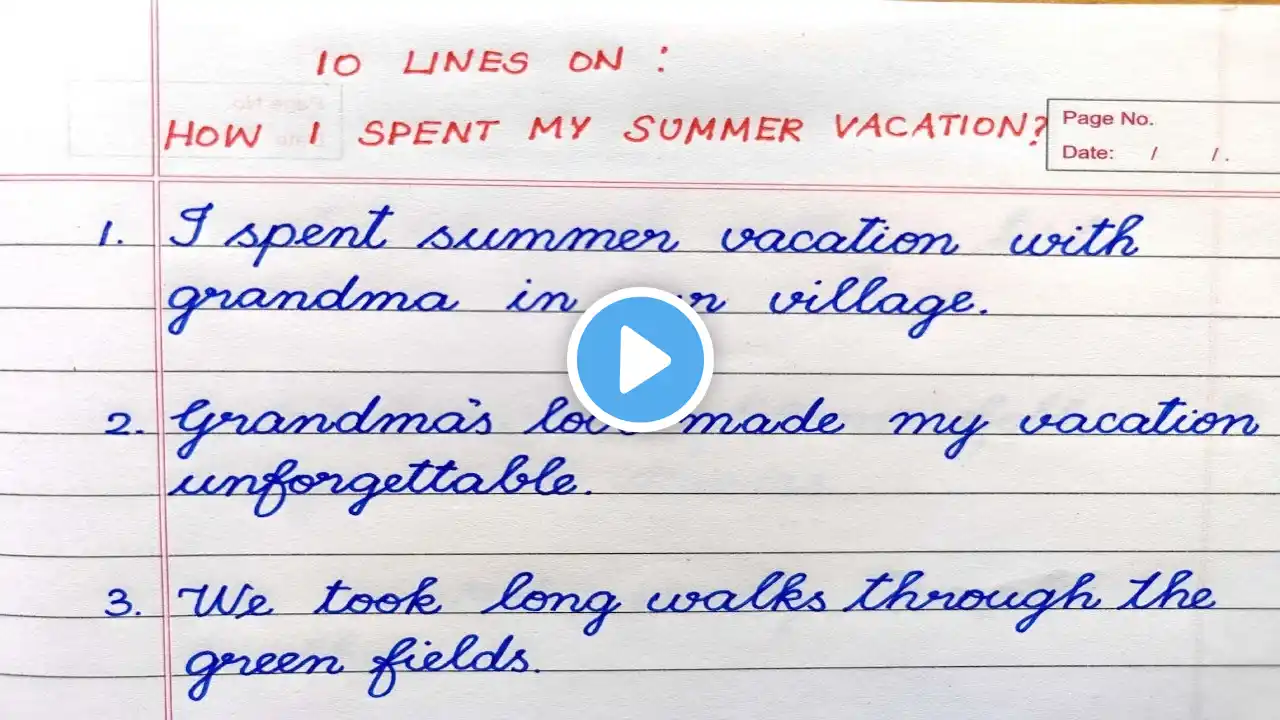 10 LINES ON :
HOW I SPENT MY SUMMER VACATION?
Page No.
Date: / / .
1. I spent summer vacation with
grandma in village.
2. Grandma's love made my vacation
unforgettable.
3. We took long walks through the
green fields.